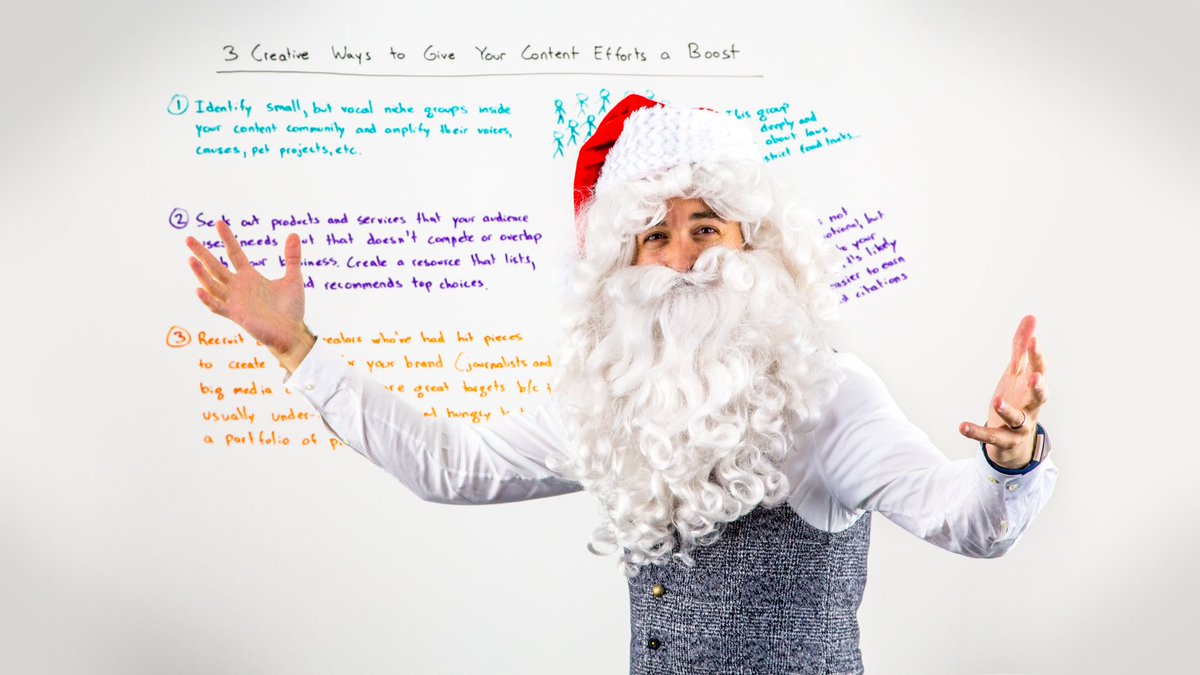 3 Creative Ways to Give Your Content Efforts a Boost
1 Identify small, but vocal niche groups inside
your content community and amplify their voices,
causes, pet projects, etc.
This group
deeply and
about laws
strict food trucks...
2 Seek out products and services that your audience
uses/needs but that doesn't compete or overlap
your business. Create a resource that lists,
recommends top choices.
not
but
your
it's likely
easier to earn
citations
3 Recruit who've had hit pieces
to create your brand (journalists and
big media great targets b/c
usually under- hungry
a portfolio of